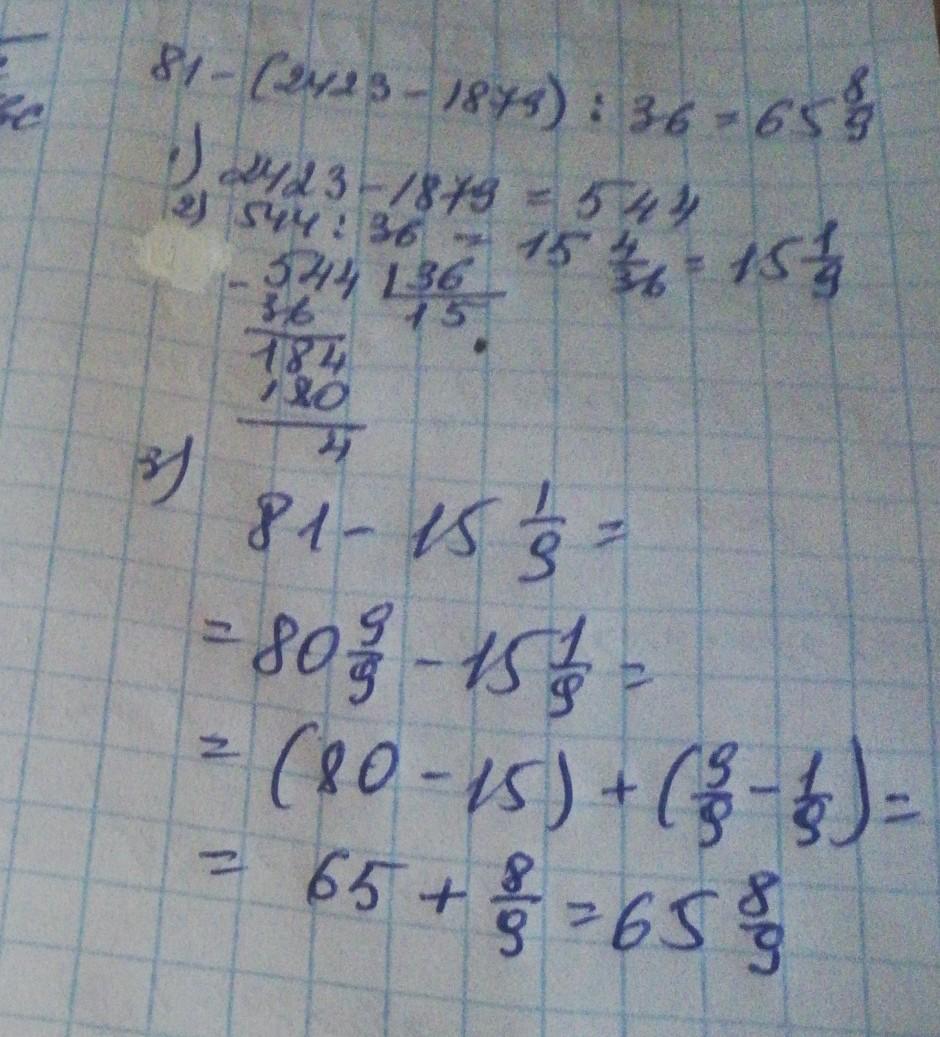 81 - (2423 - 1879) : 36 = 65 8/9
1) 2423 - 1879 = 544
2) 544 : 36 = 15 4/36 = 15 1/9
- 544 | 36
36 15
184
180
4
3)
81 - 15 1/9 =
= 80 9/9 - 15 1/9 =
= (80 - 15) + (9/9 - 1/9) =
= 65 + 8/9 = 65 8/9